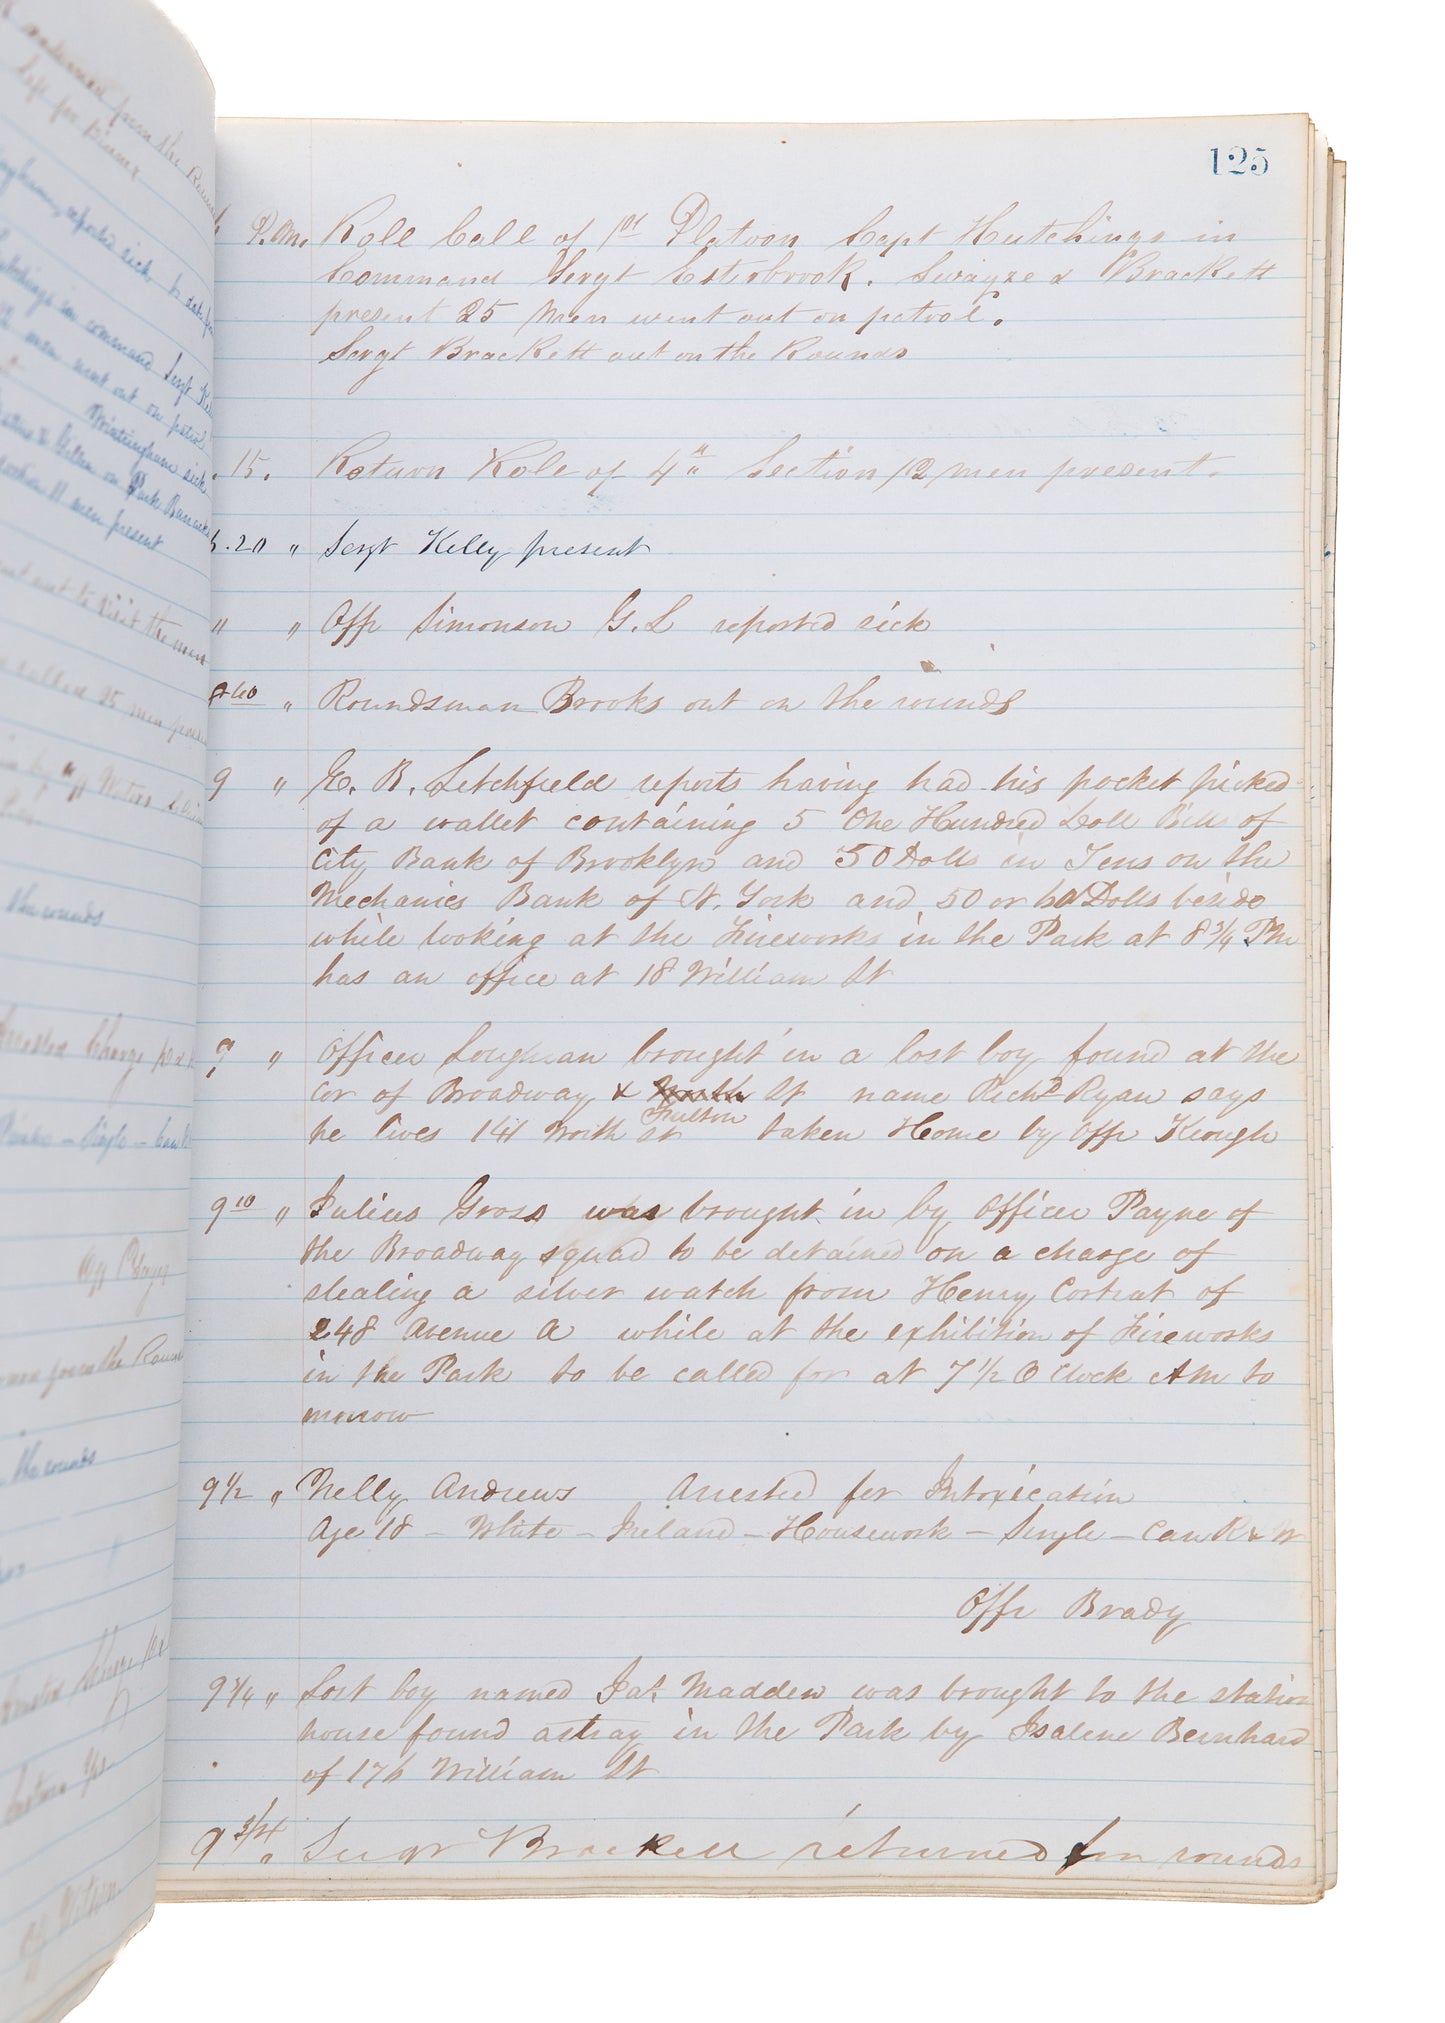 returned from the Rounds
left for Dinner
reports sick
in command Sergt
men went out on patrol
sick
on Park Barracks
11 men present
out to visit the
25 men
the rounds
arrested Charge
Single
Off
the Round
the rounds
125
P.M. Roll Call of 1st Platoon Capt Hutchings in
Command Sergt Esterbrook. Swayze & Brackett
present 25 Men went out on patrol.
Sergt Brackett out on the Rounds
.15. Return Role of 4th Section 12 men present.
6.20 " Sergt Kelly present
" " Offr Simonson G. L reported sick
8 40 " Roundsman Brooks out on the rounds
9 " E. B. Litchfield reports having had his pocket picked
of a wallet containing 5 One Hundred Doll Bills of
City Bank of Brooklyn and 50 Dolls in Tens on the
Mechanics Bank of N. York and 50 or 60 Dolls beside
while looking at the Fireworks in the Park at 8 3/4 PM
has an office at 18 William St
9 " Officer Loughman brought in a lost boy found at the
Cor of Broadway & Fulton St name Richd Ryan says
he lives 141 North St taken Home by Offr Keough
9 10 " Julius Gross was brought in by Officer Payne of
the Broadway squad to be detained on a charge of
stealing a silver watch from Henry Cortrat of
248 Avenue A while at the exhibition of Fireworks
in the Park to be called for at 7 1/2 O Clock AM to
morrow
9 1/2 " Nelly Andrews Arrested for Intoxication
Age 18 - White - Ireland - Housework - Single - Can R & W
Offr Brady
9 3/4 " Lost boy named Jas. Madden was brought to the station
house found astray in the Park by Isalene Bernhard
of 176 William St
9 3/4 " Sergt Brackett returned from rounds